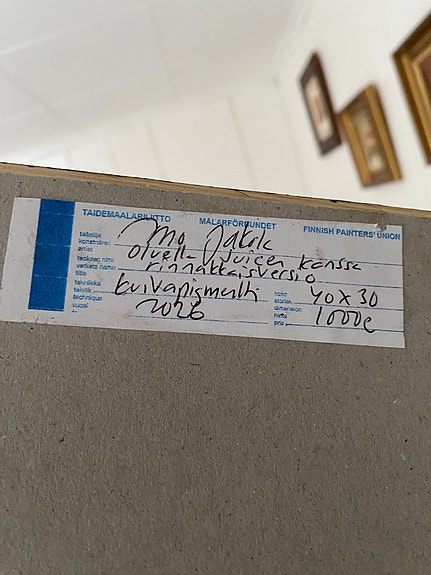 TAIDEMAALARILIITTO MÅLARFÖRBUNDET FINNISH PAINTERS' UNION
taiteilija
konstnären
artist
teoksen nimi Oluella Juicen kanssa
verkets namn rinnakkaisversio
title
tekniikka
teknik
technique
vuosi 2026
koko
storlek 40 x 30
dimension
hinta 1000€
pris